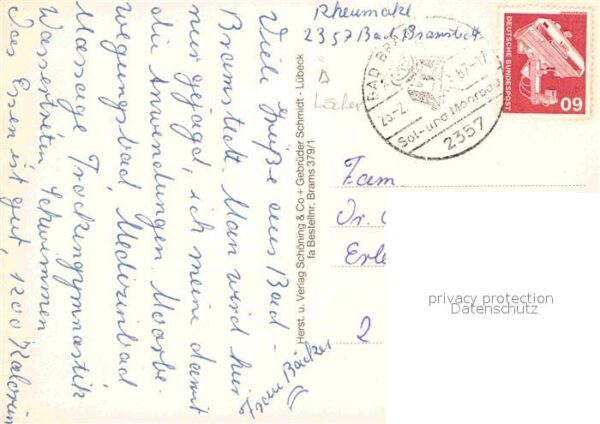 Rheumakl.
2357 Bad Bramstedt
Viele Grüße aus Bad-
Bramstedt. Man wird hier
nur gejagd, ich meine damit
die Anwendungen. Moorbe-
wegungsbad, Medizinbad
Massage Trockengymnastik
Wassertreten Schwimmen
Das Essen ist gut, 1200 Kalorien
Frau Bäcker
Herst. u. Verlag Schöning & Co + Gebrüder Schmidt - Lübeck
fa Bestellnr. Brams 379/1
BAD BR
87-17
Sol- und Moorbad
2357
DEUTSCHE BUNDESPOST
60
Fam.
Dr.
Erle
2
privacy protection
Datenschutz